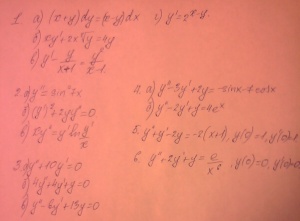 1. а) (x+y)dy=(x-y)dx г) y'=2^{x-y}
б) xy'+2x√y=4y
в) y' - y/(x+1) = y²/(x-1)
2. а) y'''=sin²x
б) (y')²+2yy''=0
в) xy''=y' ln y'/x
3. а) y''+10y'=0
б) 4y''+4y'+y=0
в) y''-6y'+13y=0
4. а) y''-3y'+2y=-sinx-7cosx
б) y''-2y'+y=4e^x
5. y''+y'-2y=-2(x+1), y(0)=1, y'(0)
6. y''+2y'+y= , y(0)=0, y'(0)